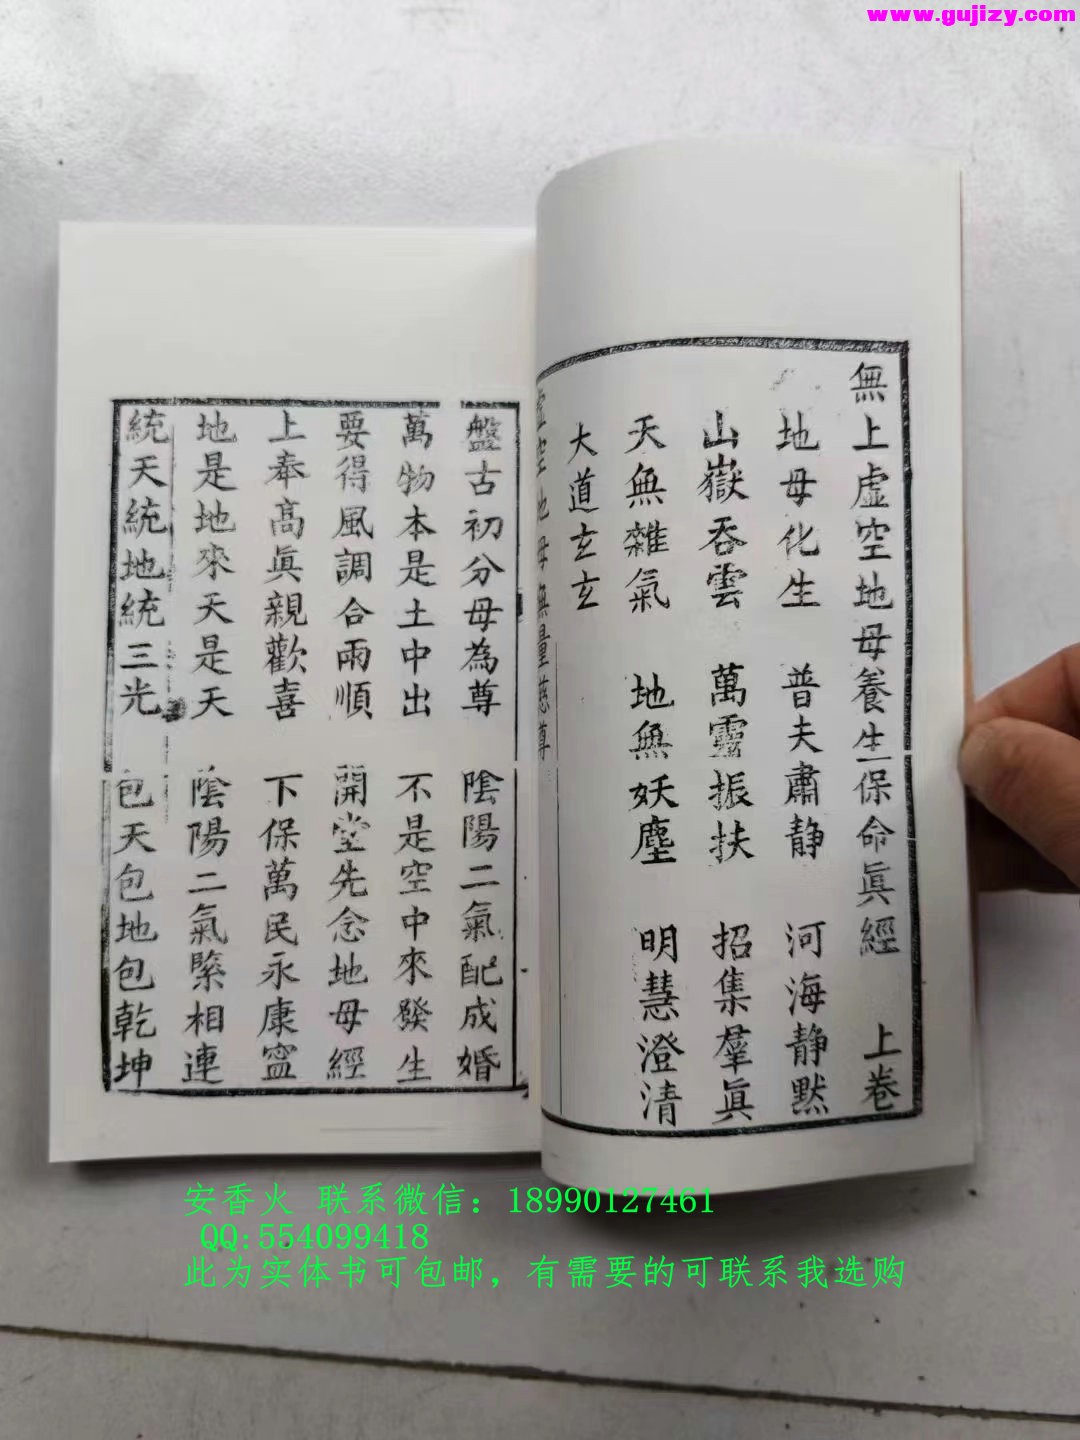 www.gujizy.com
無上虛空地母養生保命眞經 上卷
地母化生 普夫肅静 河海静默
山嶽吞雲 萬靈振扶 招集羣眞
天無雜氣 地無妖塵 明慧澄清
大道玄玄
虛空地母無量慈尊
盤古初分母為尊 陰陽二氣配成婚
萬物本是土中出 不是空中來發生
要得風調合雨順 開堂先念地母經
上奉高眞親歡喜 下保萬民永康寧
地是地來天是天 陰陽二氣緊相連
統天統地統三光 包天包地包乾坤
安香火 联系微信：18990127461
QQ:554099418
此为实体书可包邮，有需要的可联系我选购